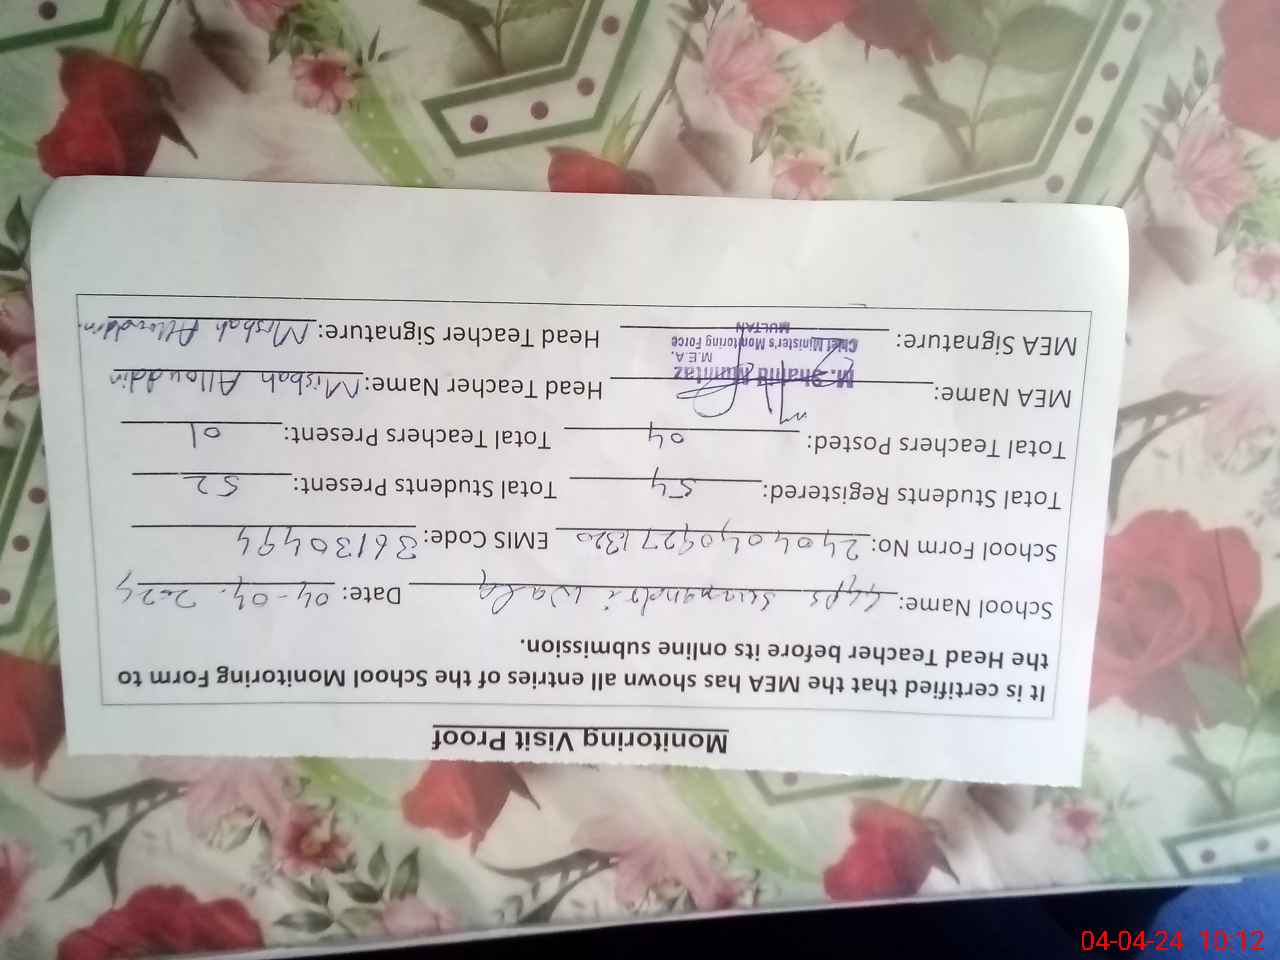 Monitoring Visit Proof
It is certified that the MEA has shown all entries of the School Monitoring Form to
the Head Teacher before its online submission.
School Name: GGPS Wala Date: 04-04-2024
School Form No: 24040409271320 EMIS Code: 36130494
Total Students Registered: 54 Total Students Present: 52
Total Teachers Posted: 04 Total Teachers Present: 01
MEA Name: M. Shahid Mumtaz Head Teacher Name: Misbah Allouddin
M.E.A.
Chief Minister's Monitoring Force
MULTAN
MEA Signature: Head Teacher Signature: Misbah Allouddin
04-04-24 10:12